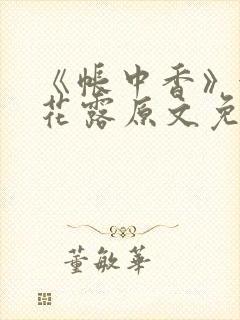 《帐中香》
花露原文免
董敏华